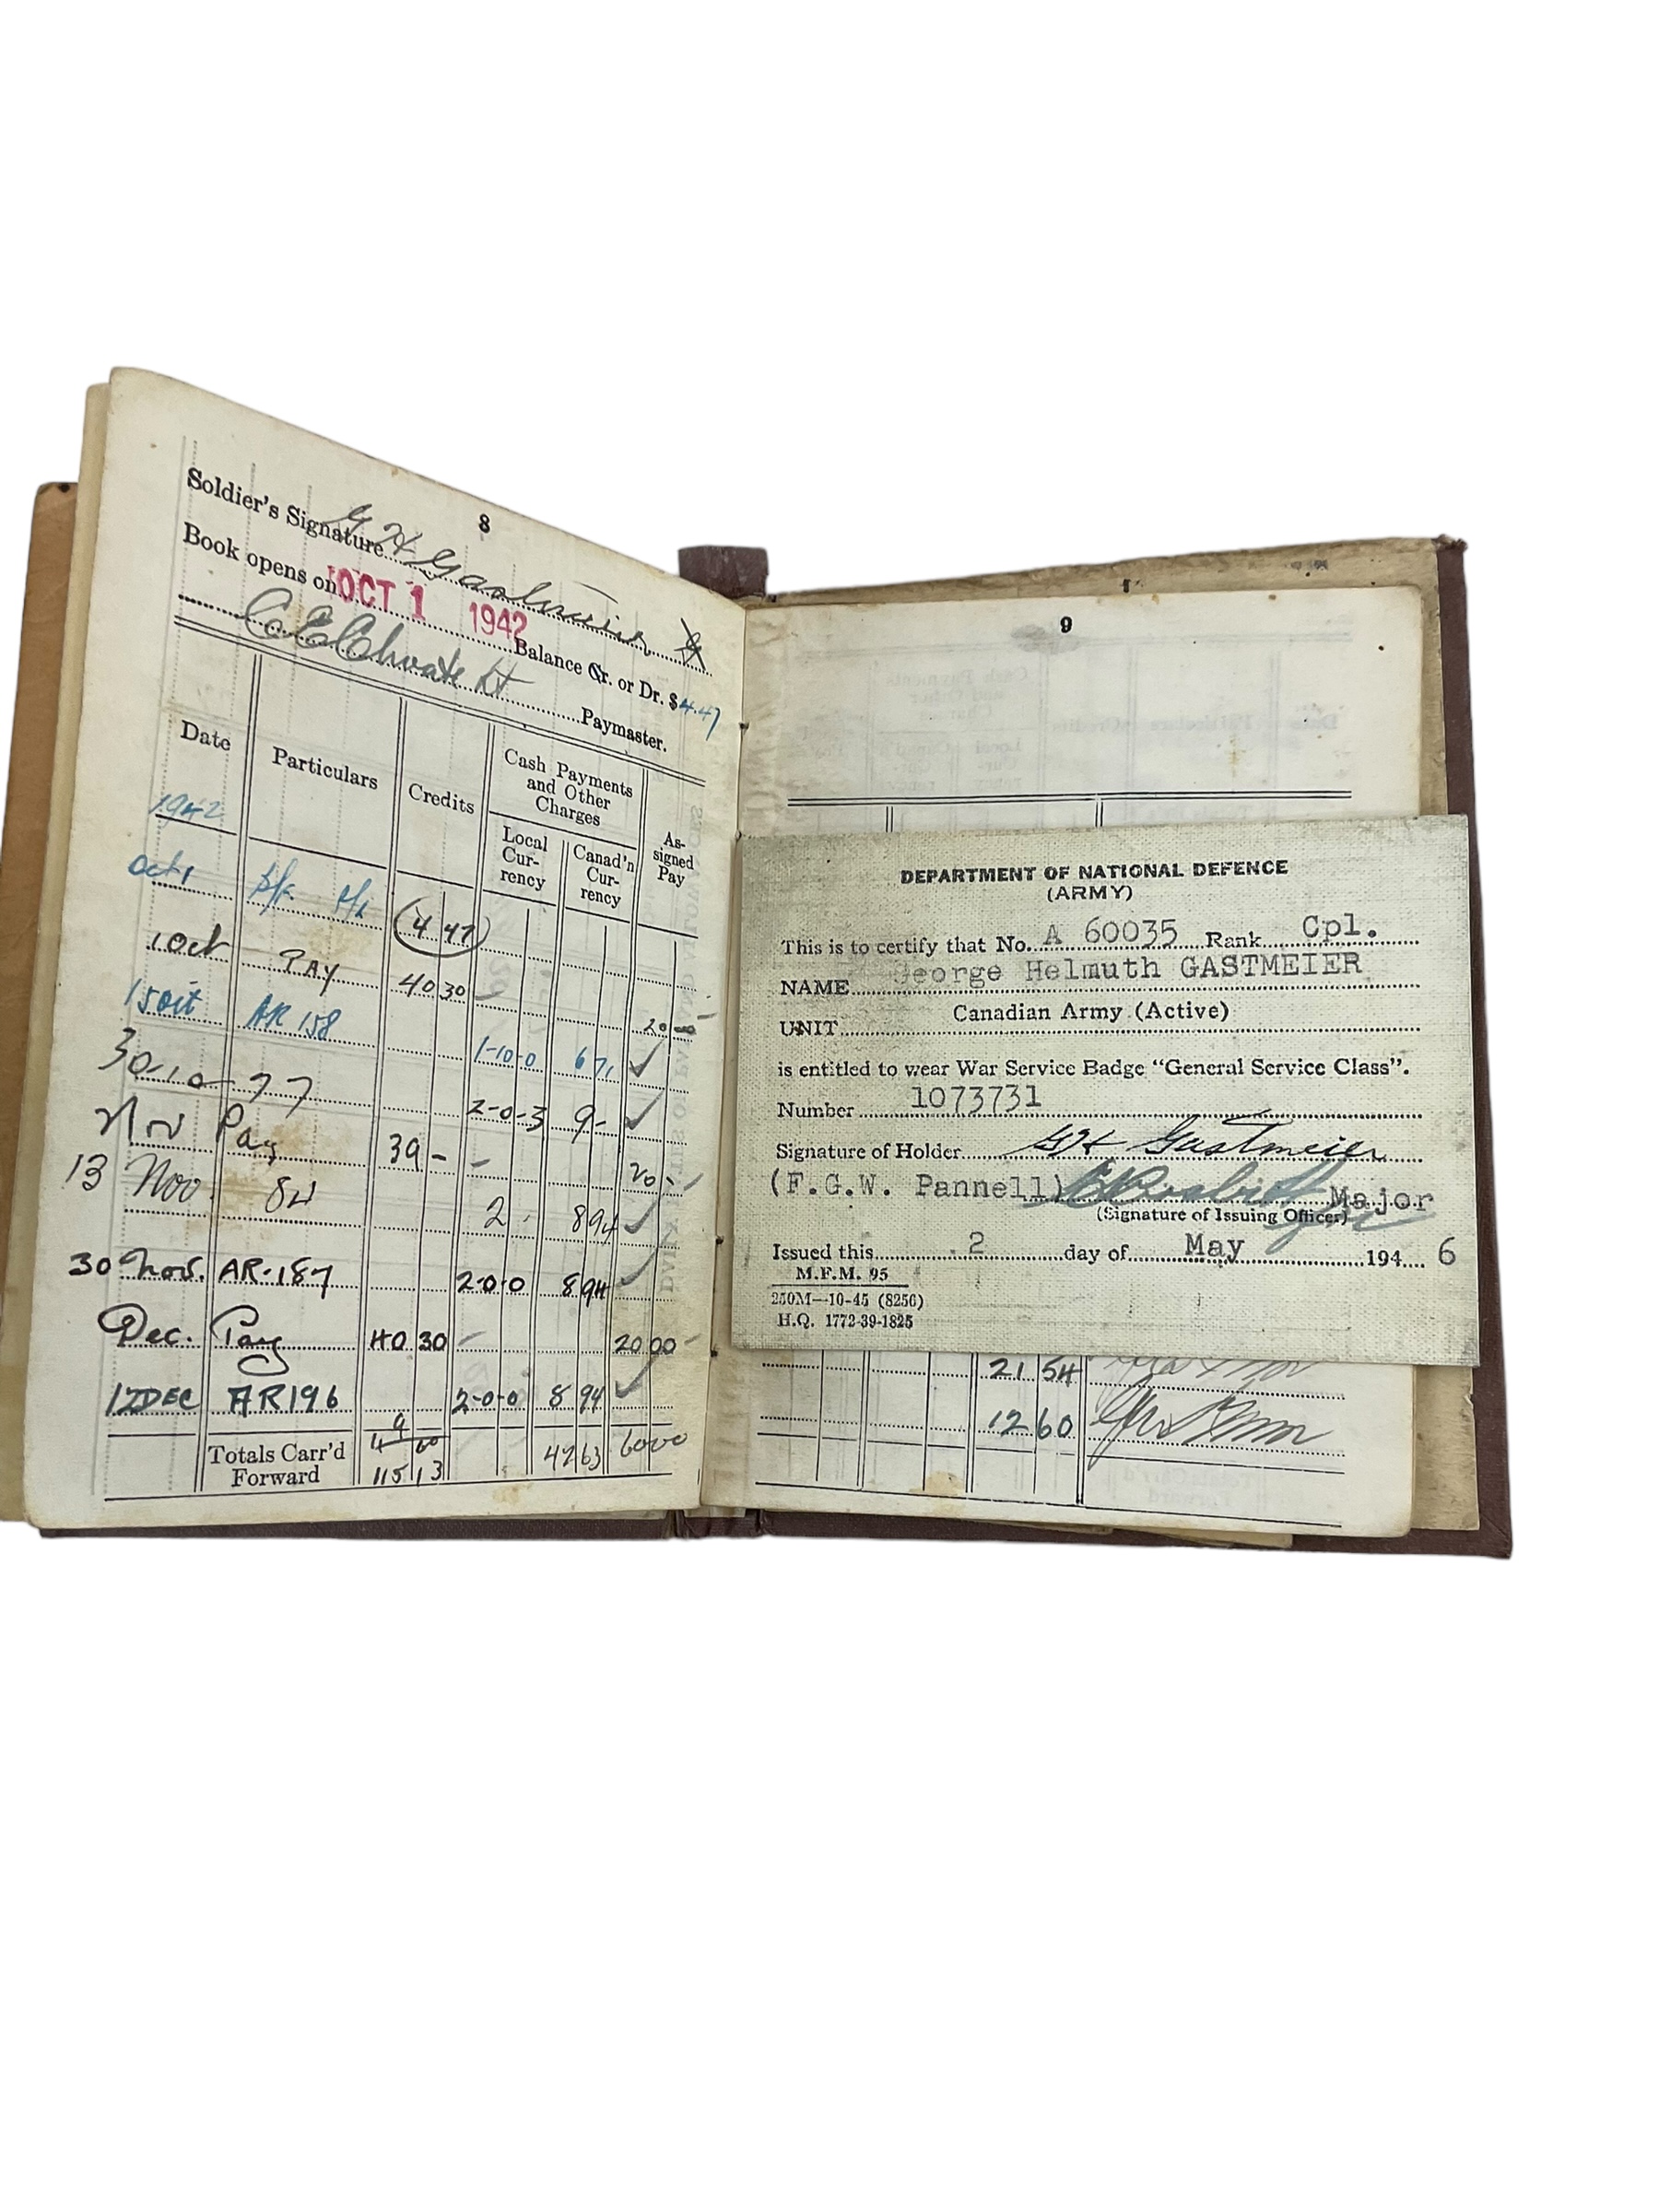 8
Soldier's Signature G H Gastmeier
Book opens on OCT 1 1942 Balance Cr. or Dr. $4.47
C E Choate Lt Paymaster.
Date Particulars Credits Cash Payments and Other Charges Assigned Pay
Local Currency Canad'n Currency
1942
Oct 1 4 47
1 Oct PAY 40 30 20
15 Oct AR 158 1-10-0 6 71
30-10 77 2-0-3 9-
Nov Pay 39 - 20 -
13 Nov. 84 2 8 94
30 Nov. AR-187 2-0-0 8 94
Dec. Pay 40 30 20 00
12 DEC AR 196 2-0-0 8 94
Totals Carr'd Forward 115 13 42 63 60 00
9
DEPARTMENT OF NATIONAL DEFENCE
(ARMY)
This is to certify that No. A 60035 Rank Cpl.
NAME George Helmuth GASTMEIER
UNIT Canadian Army (Active)
is entitled to wear War Service Badge "General Service Class".
Number 1073731
Signature of Holder G H Gastmeier
(F.G.W. Pannell) Major
(Signature of Issuing Officer)
Issued this 2 day of May 194 6
M.F.M. 95
250M—10-45 (8256)
H.Q. 1772-39-1825
21 54
12 60